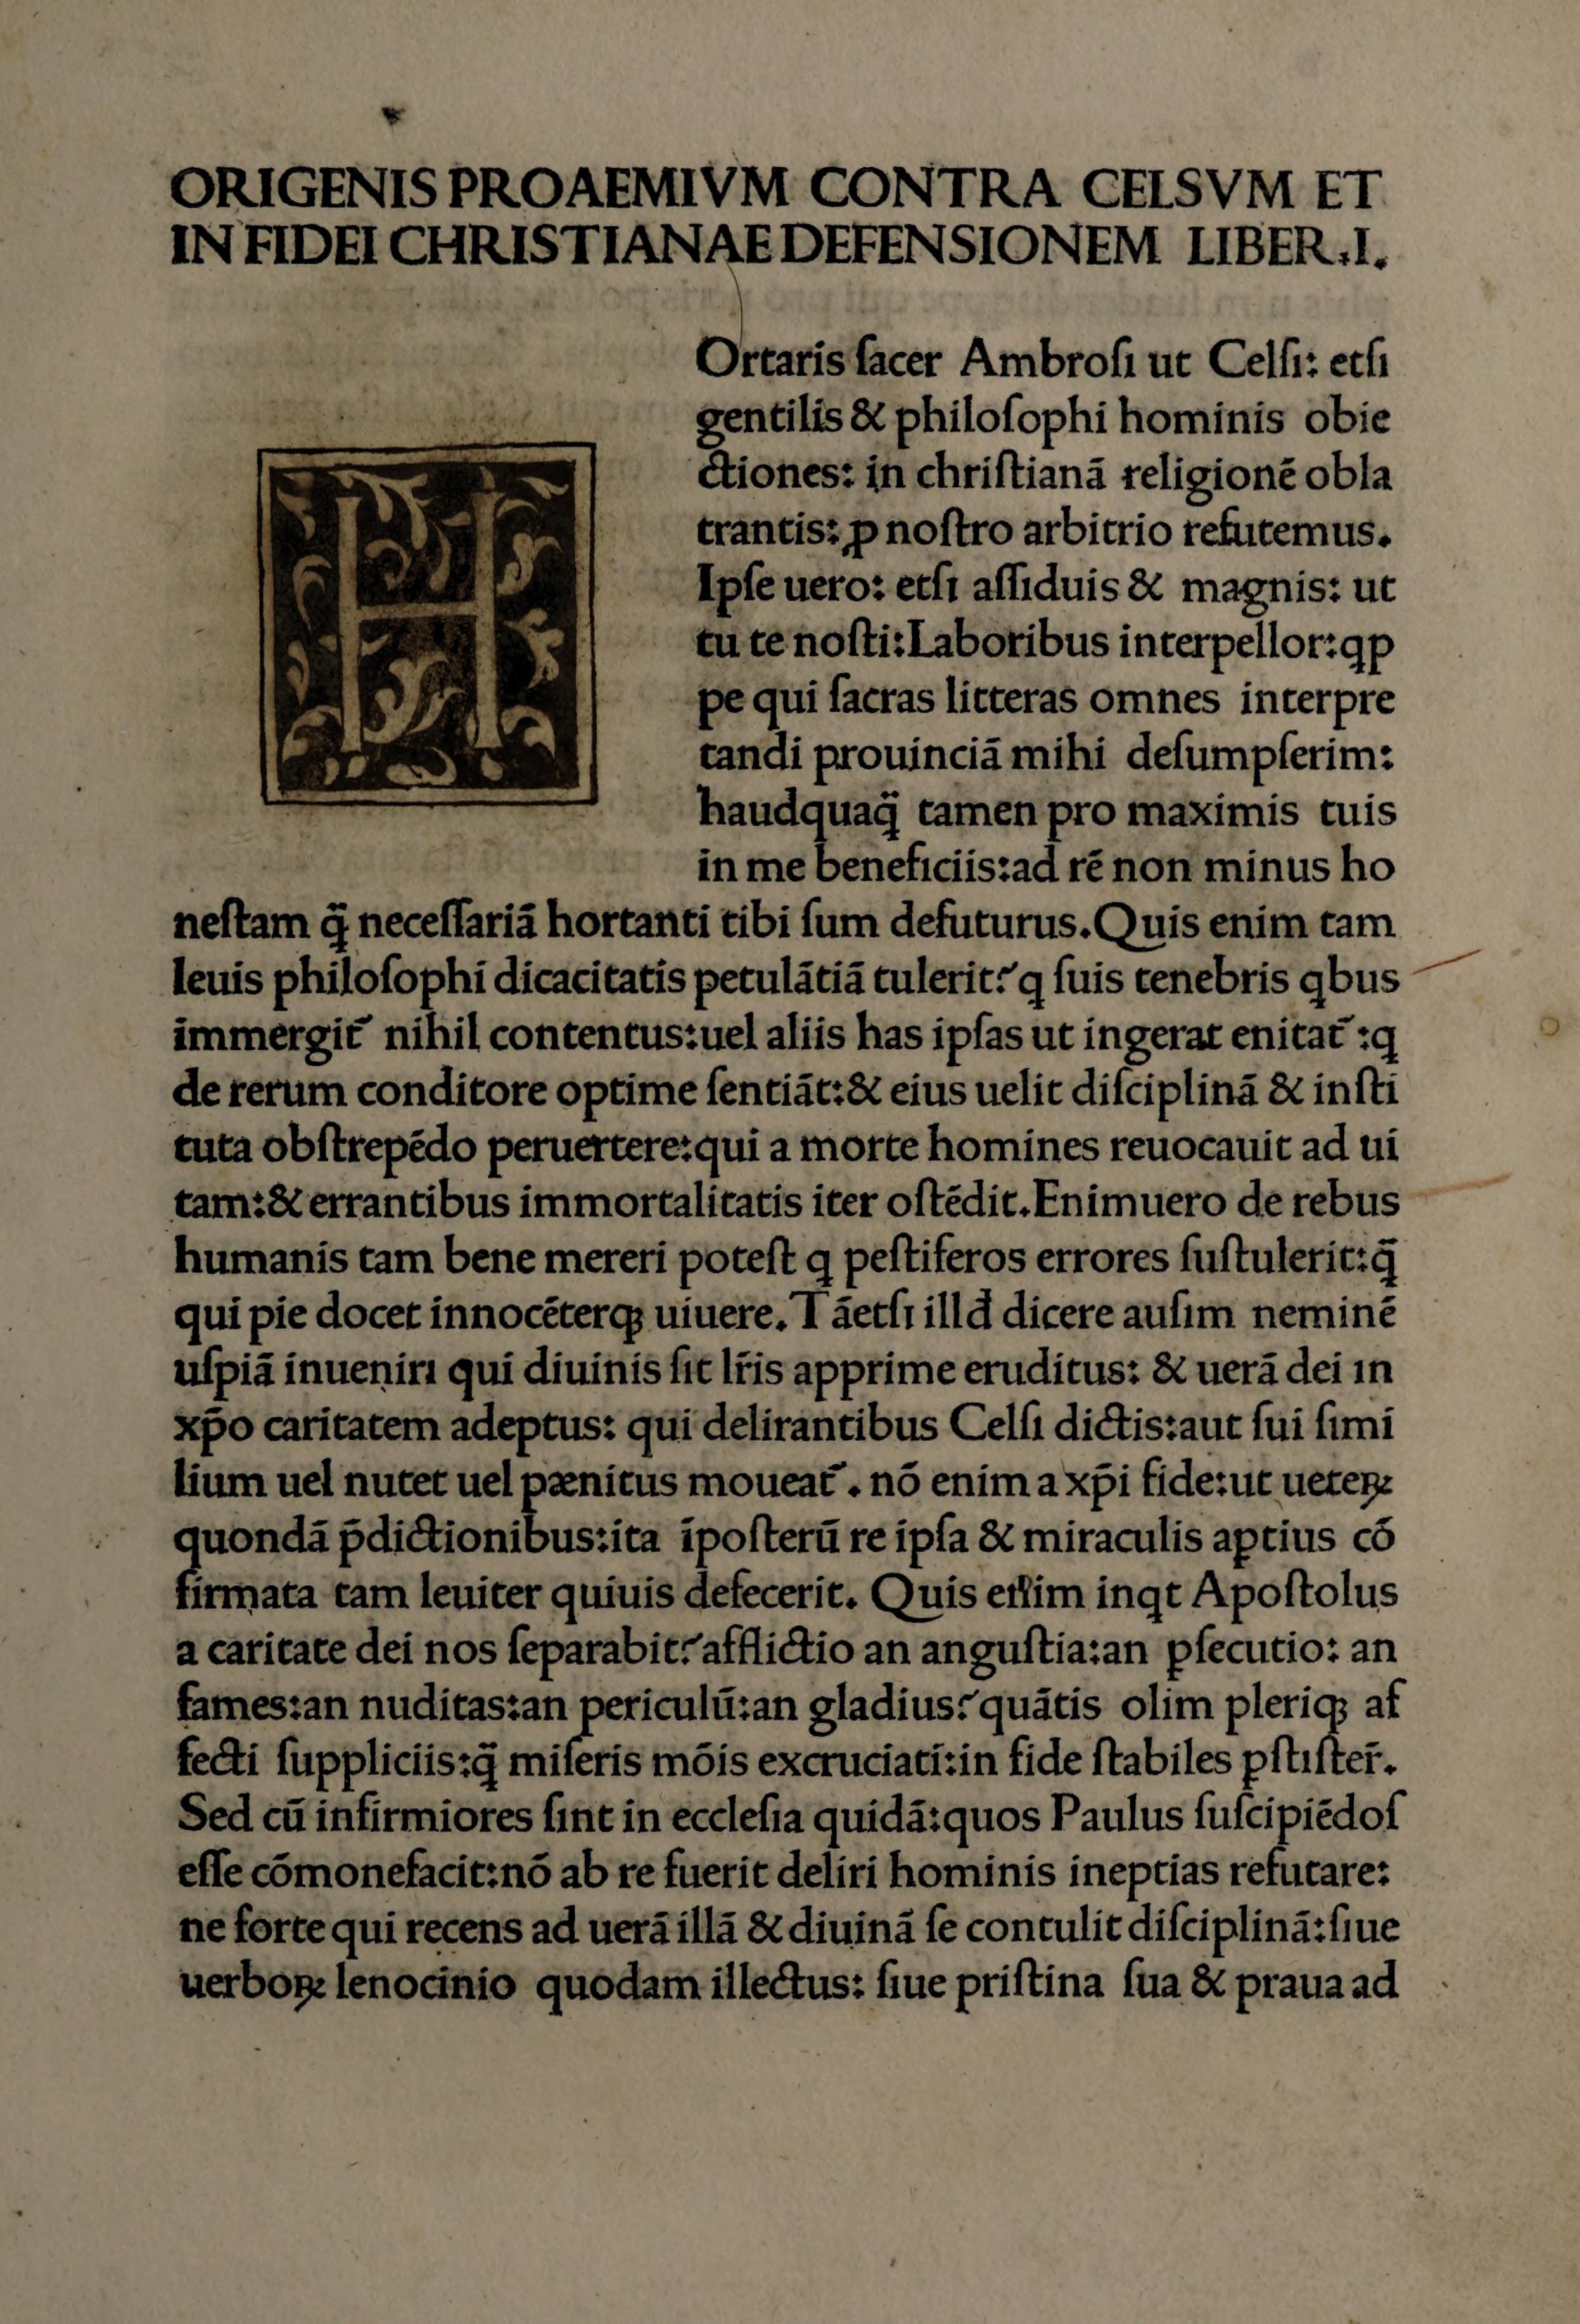 ORIGENIS PROAEMIVM CONTRA CELSVM ET
IN FIDEI CHRISTIANAE DEFENSIONEM LIBER.I.
HOrtaris ſacer Ambroſi ut Celſi: etſi
gentilis & philoſophi hominis obie
ctiones: in chriſtianā religionē obla
trantis: ꝓ noſtro arbitrio refutemus.
Ipſe uero: etſi aſſiduis & magnis: ut
tu te noſti:Laboribus interpellor:qp
pe qui ſacras litteras omnes interpre
tandi prouinciā mihi deſumpſerim:
haudquaq̃ tamen pro maximis tuis
in me beneficiis:ad rē non minus ho
neſtam q̃ neceſſariā hortanti tibi ſum defuturus.Quis enim tam
leuis philoſophi dicacitatis petulātiā tulerit? q ſuis tenebris qbus
immergit᷑ nihil contentus:uel aliis has ipſas ut ingerat enitat᷑ :q
de rerum conditore optime ſentiāt:& eius uelit diſciplinā & inſti
tuta obſtrepēdo peruertere:qui a morte homines reuocauit ad ui
tam:& errantibus immortalitatis iter oſtēdit.Enimuero de rebus
humanis tam bene mereri poteſt q peſtiferos errores ſuſtulerit:q̃
qui pie docet innocēterqꝫ uiuere.Tāetſi illđ dicere auſim neminē
uſpiā inueniri qui diuinis ſit lr̃is apprime eruditus: & uerā dei in
xp̄o caritatem adeptus: qui delirantibus Celſi dictis:aut ſui ſimi
lium uel nutet uel pænitus moueat᷑ . nō enim a xp̄i fide:ut ueteꝝ
quondā p̄dictionibus:ita īpoſterū re ipſa & miraculis aptius cō
firmata tam leuiter quiuis defecerit. Quis enim inqt Apoſtolus
a caritate dei nos ſeparabit? afflictio an anguſtia:an ꝑſecutio: an
fames:an nuditas:an periculū:an gladius? quātis olim pleriqꝫ af
fecti ſuppliciis:q̃ miſeris mōis excruciati:in fide ſtabiles ꝑſtiſter̃.
Sed cū infirmiores ſint in eccleſia quidā:quos Paulus ſuſcipiēdoſ
eſſe cōmonefacit:nō ab re fuerit deliri hominis ineptias refutare:
ne forte qui recens ad uerā illā & diuinā ſe contulit diſciplinā:ſiue
uerboꝝ lenocinio quodam illectus: ſiue priſtina ſua & praua ad